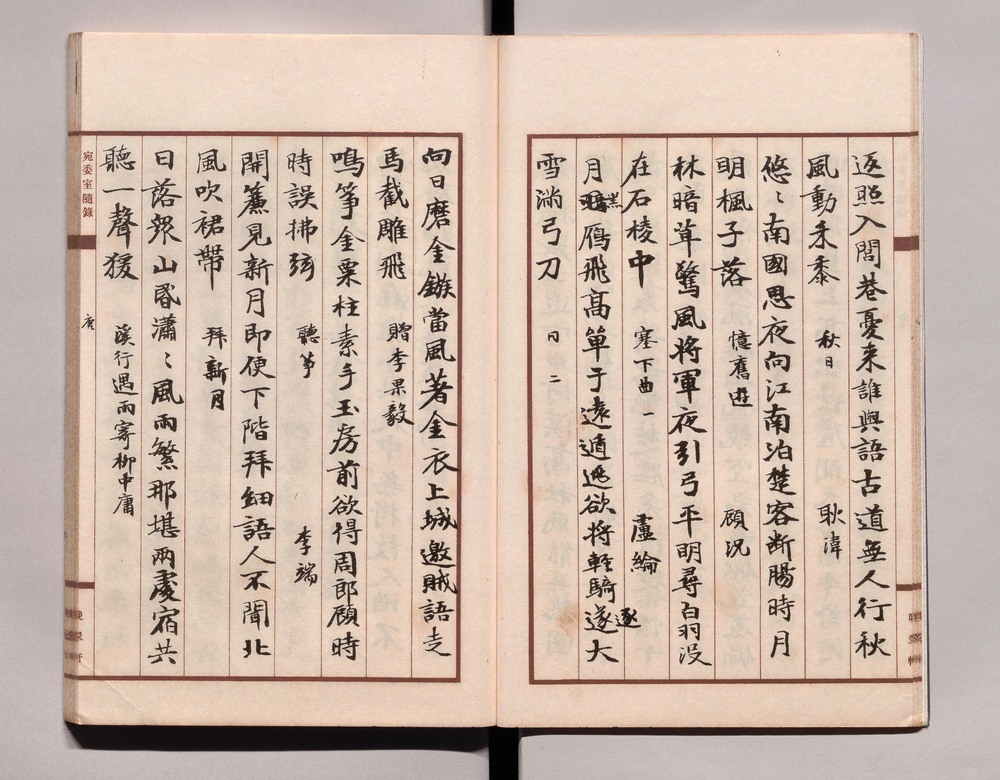 返照入閭巷憂来誰與語古道無人行秋
風動禾黍 秋日 耿湋
悠〻南國思夜向江南泊楚客断腸時月
明楓子落 憶舊遊 顧況
林暗草驚風将軍夜引弓平明尋白羽没
在石棱中 塞下曲一 盧綸
月黑鴈飛高單于遠遁逃欲将輕騎逐大
雪満弓刀 〃 二
向日磨金鏃當風著金衣上城邀賊語走
馬截雕飛 贈李果毅
鳴筝金粟柱素手玉房前欲得周郎顧時
時誤拂弦 聽筝 李端
開簾見新月即便下階拜細語人不聞北
風吹裙帶 拜新月
日落衆山昏瀟〻風雨繁那堪兩處宿共
聽一聲猨 溪行遇雨寄柳中庸
宛委室隨錄
唐